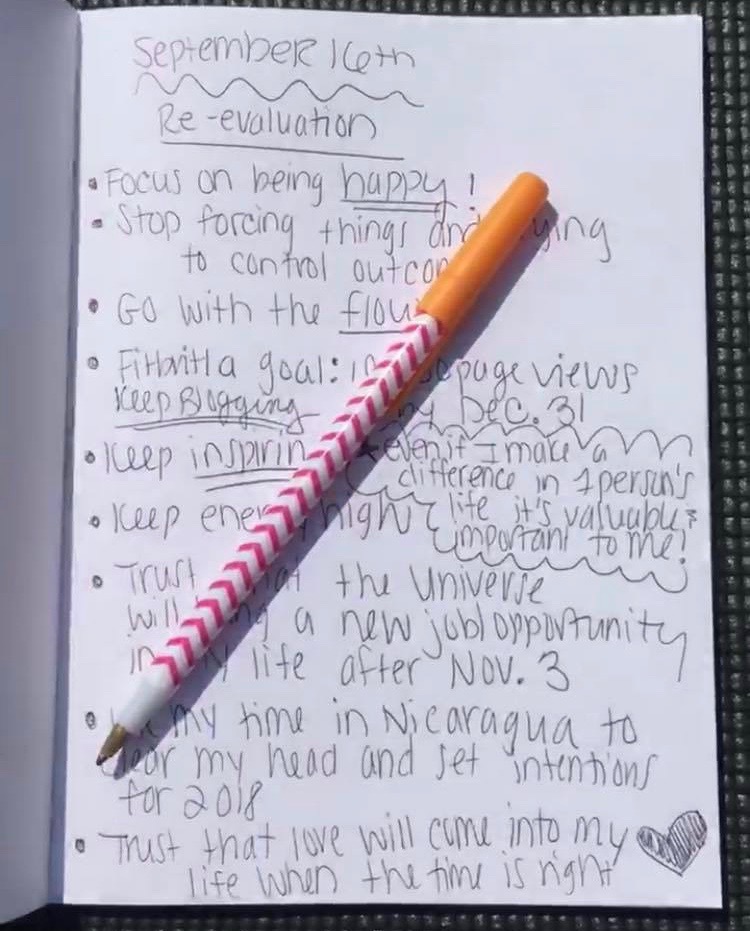 September 16th
Re-evaluation
• Focus on being happy!
• Stop forcing things and
to control
• Go with the
• goal: page views
Keep Blogging Dec. 31
• Keep ★even if I make a
difference in 1 person's
• Keep high life it's valuable &
important to me!
• Trust the Universe
will a new job/opportunity
in life after Nov. 3
• my time in Nicaragua to
my head and set intentions
for 2018
• Trust that love will come into my
life when the time is right